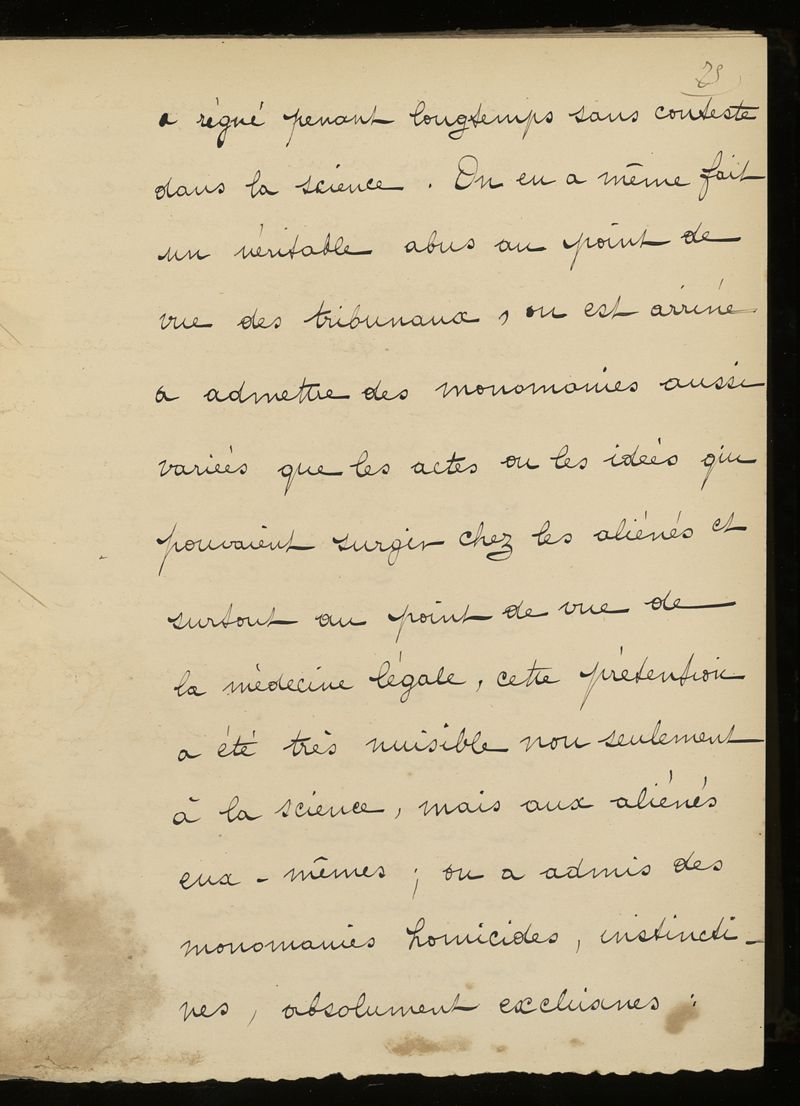 a régné penant longtemps sans conteste
dans la science. On en a même fait
un véritable abus au point de
vue des tribunaux, on est arrivé
a admettre des monomanies aussi
variées que les actes ou les idées qui
pouvaient surgir chez les aliénés et
surtout au point de vue de
la médecine légale, cette prétention
a été très nuisible non seulement
à la science, mais aux aliénés
eux-mêmes; on a admis des
monomanies homicides, instincti-
ves, absolument exclusives: